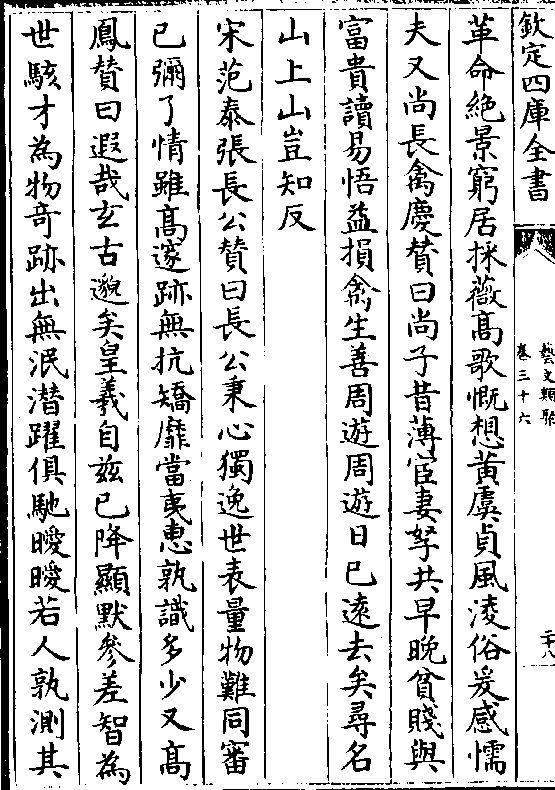 欽定四庫全書
藝文類聚
卷三十六
二十八
革命絶景窮居採薇髙歌慨想黃虞貞風淩俗爰感懦
夫又尚長禽慶贊曰尚子昔薄宦妻孥共早晚貧賤與
富貴讀易悟益損禽生善周遊周遊日已逺去矣尋名
山上山豈知反
宋范泰張長公贊曰長公秉心獨逸世表量物難同審
已彌了情雖髙邃跡無抗矯靡當夷惠孰識多少又髙
鳳贊曰遐哉玄古邈矣皇羲自兹已降顯默參差智為
世駭才為物竒跡出無泯潜躍俱馳曖曖若人孰測其